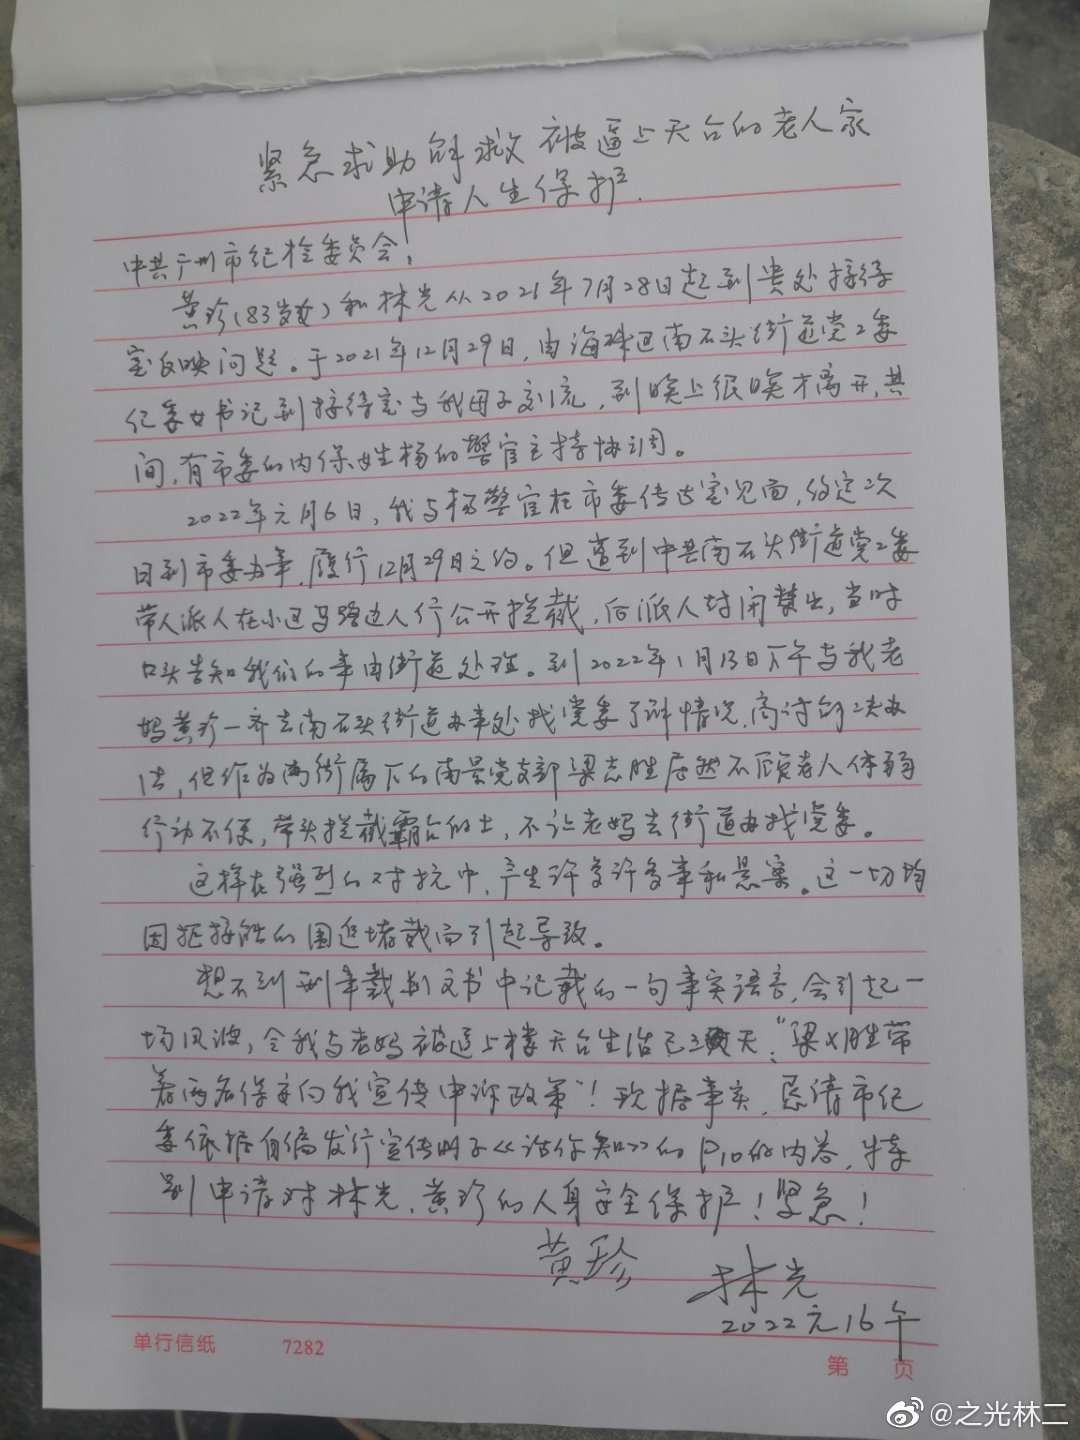 紧急求助解救被逼上天台的老人家
申请人生保护.
中共广州市纪检委员会:
黄珍(83岁女)和林光从2021年7月28日起到贵处接待
室反映问题。于2021年12月29日,由海珠区南石头街道党工委
纪委女书记到接待室与我母子交流,到晚上很晚才离开,其
间,有市委的内保姓杨的警官主持协调。
2022年元月6日,我与杨警官在市委传达室见面,约定次
日到市委办事,履行12月29日之约。但遭到中共南石头街道党工委
带人派人在小区马路边人行公开拦截,后派人封闭禁出,当时
口头告知我们的事由街道处理。到2022年1月13日下午与我老
妈黄珍一齐去南石头街道办事处找党委了解情况,商讨解决办
法,但作为南街属下的南景党支部梁志胜居然不顾老人体弱
行动不便,带头拦截霸占的士,不让老妈去街道办找党委。
这样在强烈的对抗中,产生许多许多事和悬案。这一切均
因拒接触的围追堵截而引起导致。
想不到刑事裁判文书中记载的一句事实语言,会引起一
场风波,令我与老妈被逼上楼天台生活已三天:“梁X胜带
着两名保安向我宣传申诉政策”!现据事实,恳请市纪
委依据自编发行宣传册子《话你知》的P10的内容,特
别申请对林光、黄珍的人身安全保护!紧急!
黄珍
林光
2022元16午
单行信纸 7282
第 页
@之光林二